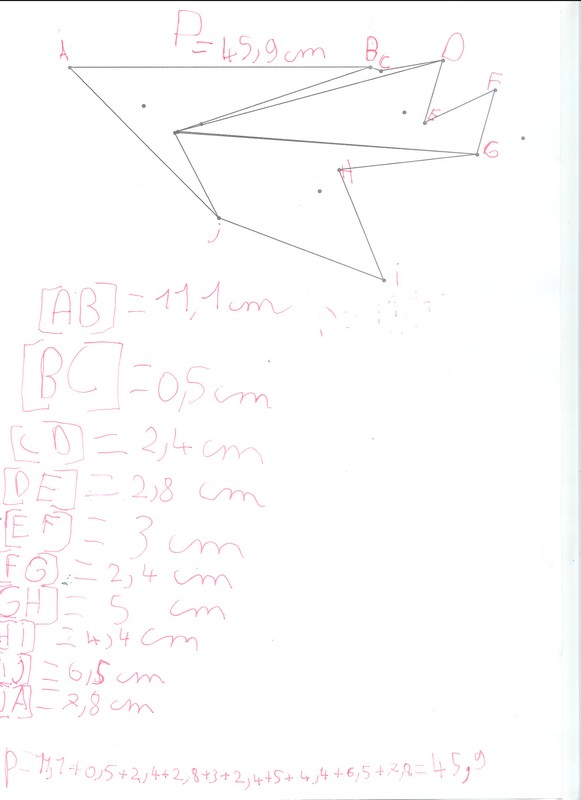 P = 45,9 cm
A
B
C
D
E
F
G
H
i
j
[AB] = 11,1 cm
[BC] = 0,5 cm
[CD] = 2,4 cm
[DE] = 2,8 cm
[EF] = 3 cm
[FG] = 2,4 cm
[GH] = 5 cm
[Hi] = 4,4 cm
[iJ] = 6,5 cm
[JA] = 7,8 cm
P = 11,1+0,5+2,4+2,8+3+2,4+5+4,4+6,5+7,8=45,9